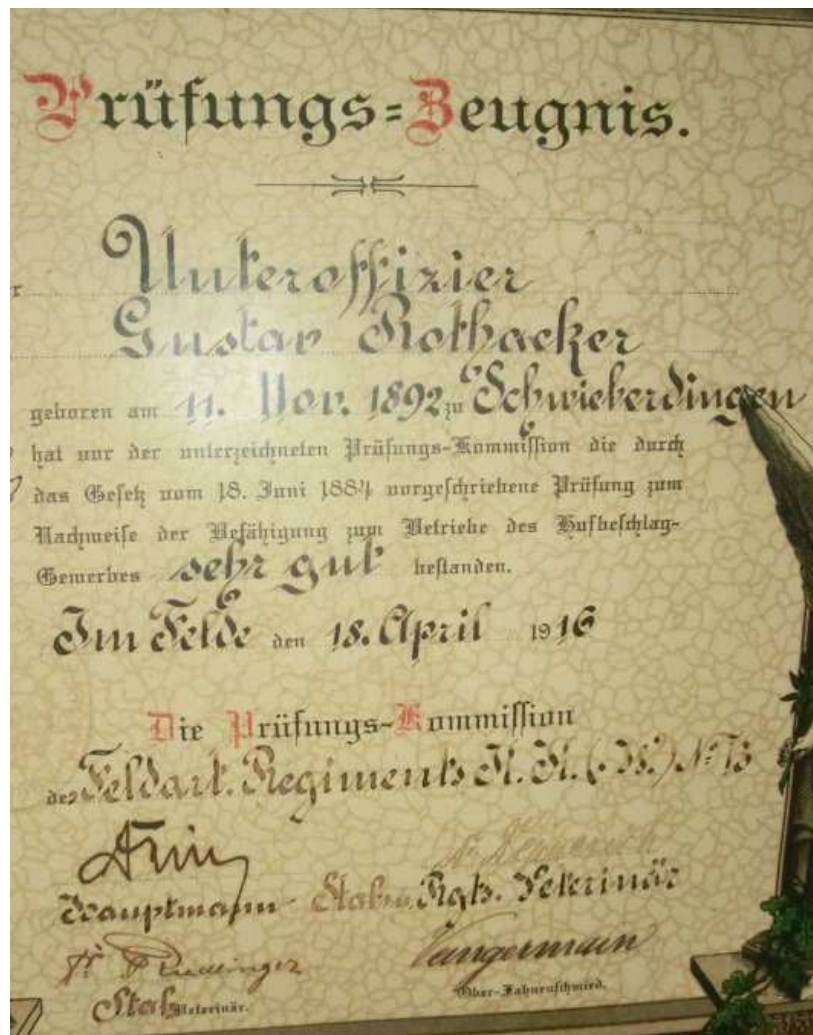 Prüfungs-Zeugnis.
Unteroffizier
Gustav Rothacker
geboren am 11. Nov. 1892 zu Schwieberdingen
hat vor der unterzeichneten Prüfungs-Kommission die durch
das Gesetz vom 18. Juni 1884 vorgeschriebene Prüfung zum
Nachweise der Befähigung zum Betriebe des Hufbeschlag-
Gewerbes sehr gut bestanden.
Im Felde den 18. April 1916
Die Prüfungs-Kommission
des Feldart. Regiments K. K. (
Hauptmann Stabs u. Rgts. Veterinär
Stabsveterinär.
Ober-Fahnenschmied.